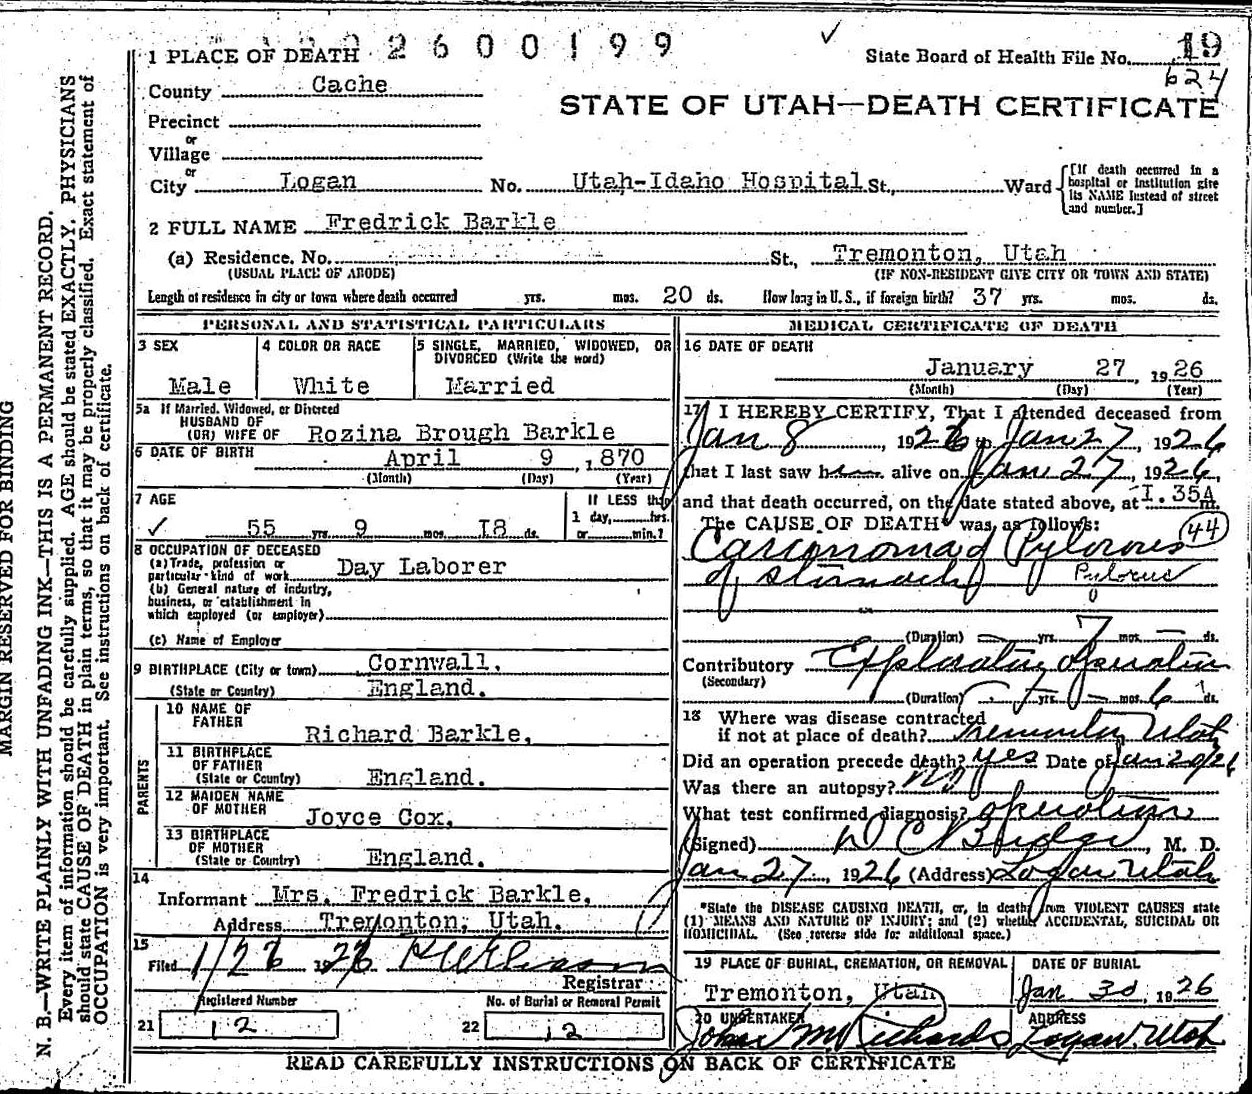 2600199
1 PLACE OF DEATH
State Board of Health File No. 19
624
County Cache
STATE OF UTAH—DEATH CERTIFICATE
Precinct
or
Village
or
City Logan No. Utah-Idaho Hospital St., Ward
[If death occurred in a hospital or institution give its NAME instead of street and number.]
2 FULL NAME Fredrick Barkle
(a) Residence. No. St., Tremonton, Utah
(USUAL PLACE OF ABODE) (IF NON-RESIDENT GIVE CITY OR TOWN AND STATE)
Length of residence in city or town where death occurred yrs. mos. 20 ds. How long in U. S., if foreign birth? 37 yrs. mos. ds.
PERSONAL AND STATISTICAL PARTICULARS
3 SEX
Male
4 COLOR OR RACE
White
5 SINGLE, MARRIED, WIDOWED, OR DIVORCED (Write the word)
Married
5a If Married, Widowed, or Divorced
HUSBAND OF
(OR) WIFE OF Rozina Brough Barkle
6 DATE OF BIRTH April 9, 1870
(Month) (Day) (Year)
7 AGE
✓ 55 yrs. 9 mos. 18 ds.
If LESS than
1 day, hrs.
or min.?
8 OCCUPATION OF DECEASED
(a) Trade, profession or
particular kind of work Day Laborer
(b) General nature of industry,
business, or establishment in
which employed (or employer)
(c) Name of Employer
9 BIRTHPLACE (City or town) Cornwall,
(State or Country) England.
PARENTS
10 NAME OF
FATHER
Richard Barkle,
11 BIRTHPLACE
OF FATHER
(State or Country) England.
12 MAIDEN NAME
OF MOTHER
Joyce Cox,
13 BIRTHPLACE
OF MOTHER
(State or Country) England.
14
Informant Mrs. Fredrick Barkle,
Address Tremonton, Utah.
15
Filed 1/28 1926
Registrar
Registered Number
21 12
No. of Burial or Removal Permit
22 12
MEDICAL CERTIFICATE OF DEATH
16 DATE OF DEATH
January 27, 1926
(Month) (Day) (Year)
17 I HEREBY CERTIFY, That I attended deceased from
Jan 8, 1926 to Jan 27, 1926
that I last saw him alive on Jan 27, 1926,
and that death occurred, on the date stated above, at 1.35A m.
The CAUSE OF DEATH* was as follows:
44
Carcinoma of Pylorous
of stomach Pylorus
(Duration) — yrs. 7 mos. — ds.
Contributory Exploratory operation
(Secondary)
(Duration) yrs. — mos. 6 ds.
18 Where was disease contracted
if not at place of death? Tremonton Utah
Did an operation precede death? yes Date of Jan 20/26
Was there an autopsy? No
What test confirmed diagnosis? operation
(Signed) D C Budge, M. D.
Jan 27, 1926 (Address) Logan Utah
*State the DISEASE CAUSING DEATH, or, in deaths from VIOLENT CAUSES state
(1) MEANS AND NATURE OF INJURY; and (2) whether ACCIDENTAL, SUICIDAL OR
HOMICIDAL. (See reverse side for additional space.)
19 PLACE OF BURIAL, CREMATION, OR REMOVAL
Tremonton, Utah
DATE OF BURIAL
Jan. 30, 1926
20 UNDERTAKER
John M Richards
ADDRESS
Logan, Utah
READ CAREFULLY INSTRUCTIONS ON BACK OF CERTIFICATE
MARGIN RESERVED FOR BINDING
N. B.—WRITE PLAINLY WITH UNFADING INK—THIS IS A PERMANENT RECORD.
Every item of information should be carefully supplied. AGE should be stated EXACTLY. PHYSICIANS
should state CAUSE OF DEATH in plain terms, so that it may be properly classified. Exact statement of
OCCUPATION is very important. See instructions on back of certificate.